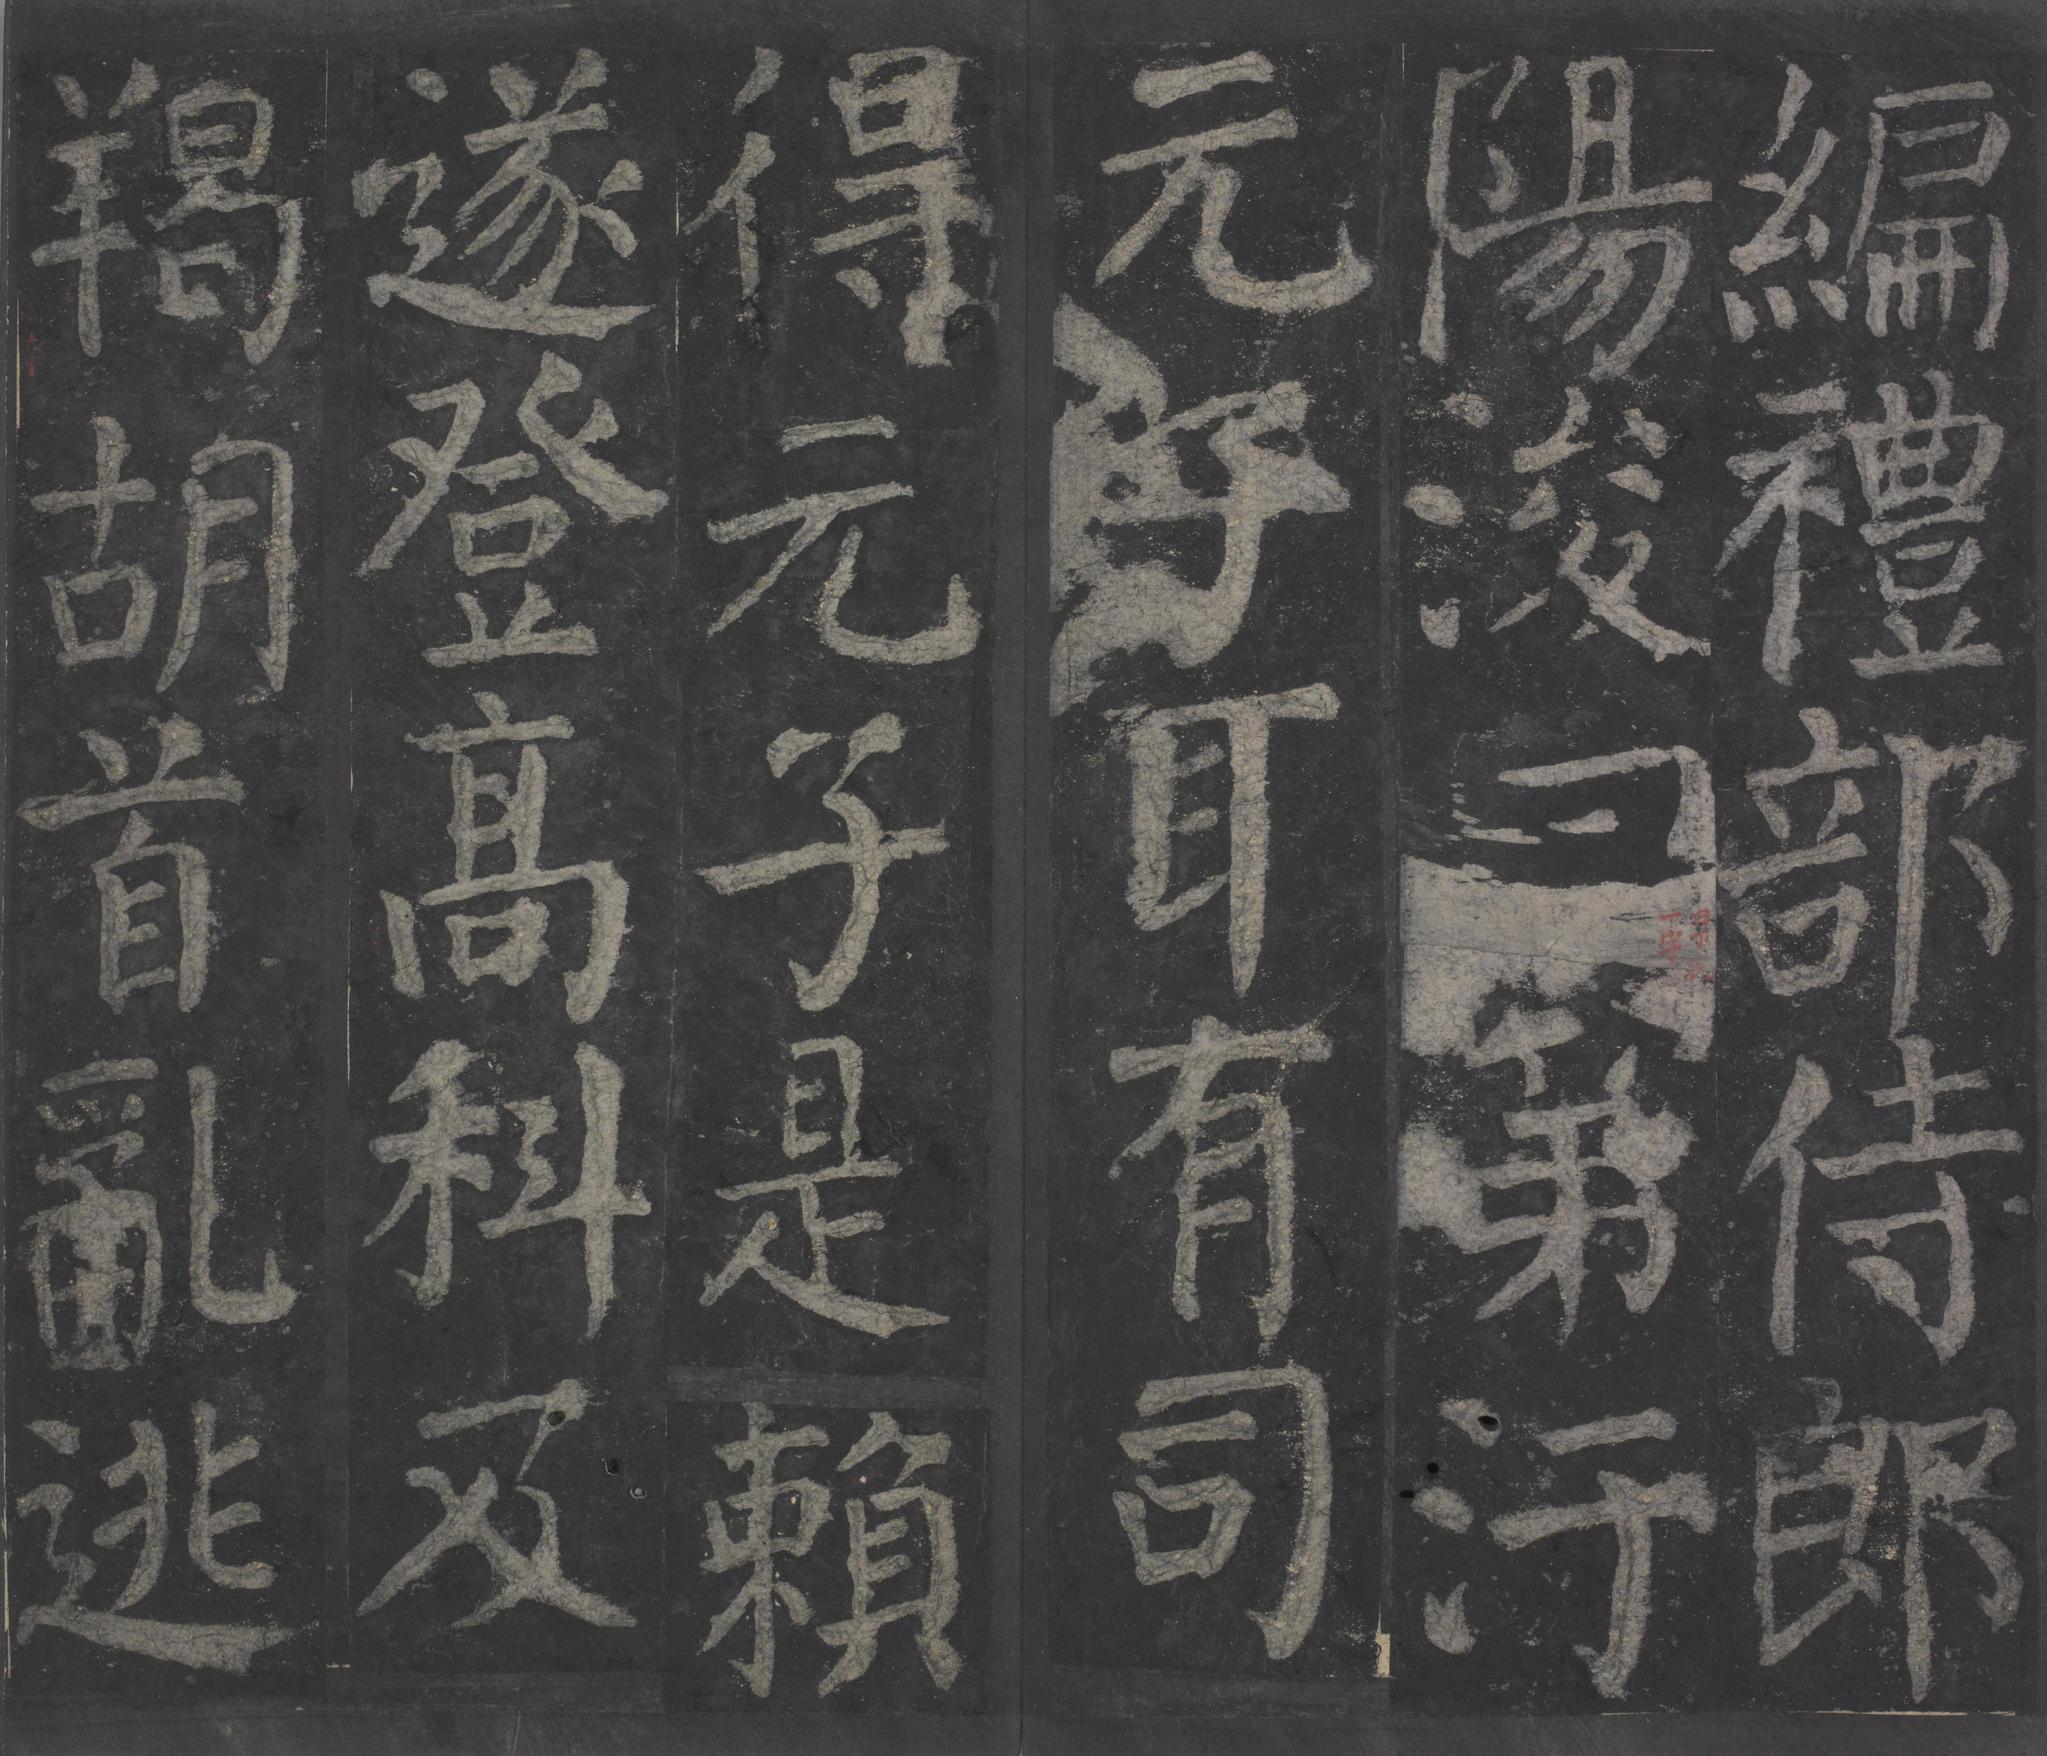 編禮部侍郎
陽浚曰第汙
元子耳有司
得元子是賴
遂登髙科及
羯胡首亂逃